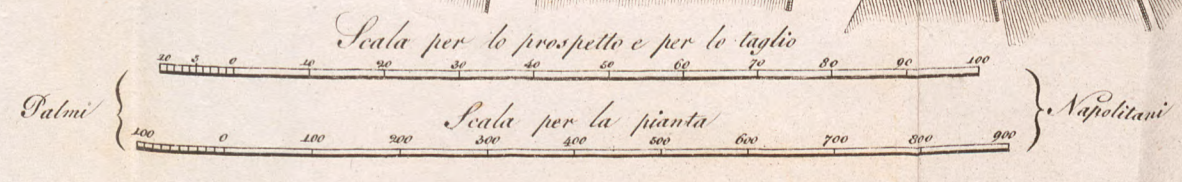 Scala per lo prospetto e per lo taglio
10 5 0 10 20 30 40 50 60 70 80 90 100
Palmi Napolitani
Scala per la pianta
100 0 100 200 300 400 500 600 700 800 900